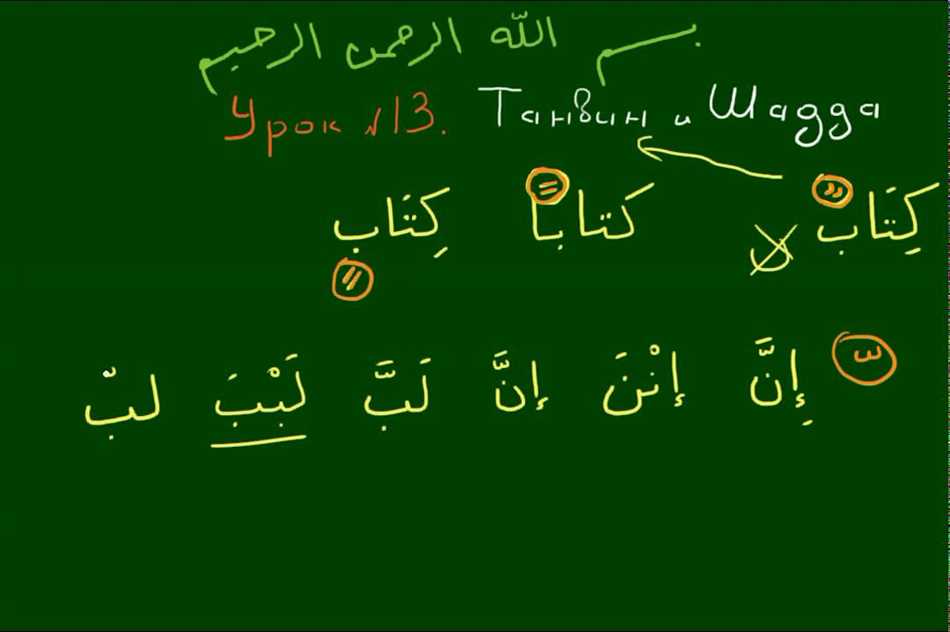 بسم الله الرحمن الرحيم
Урок №13. Танвин и Шадда
كِتَابٌ ن كتاباً كِتَابٍ
ّ إِنَّ إنْنَ إنَّ لَبَّ لَبْبَ لبّ